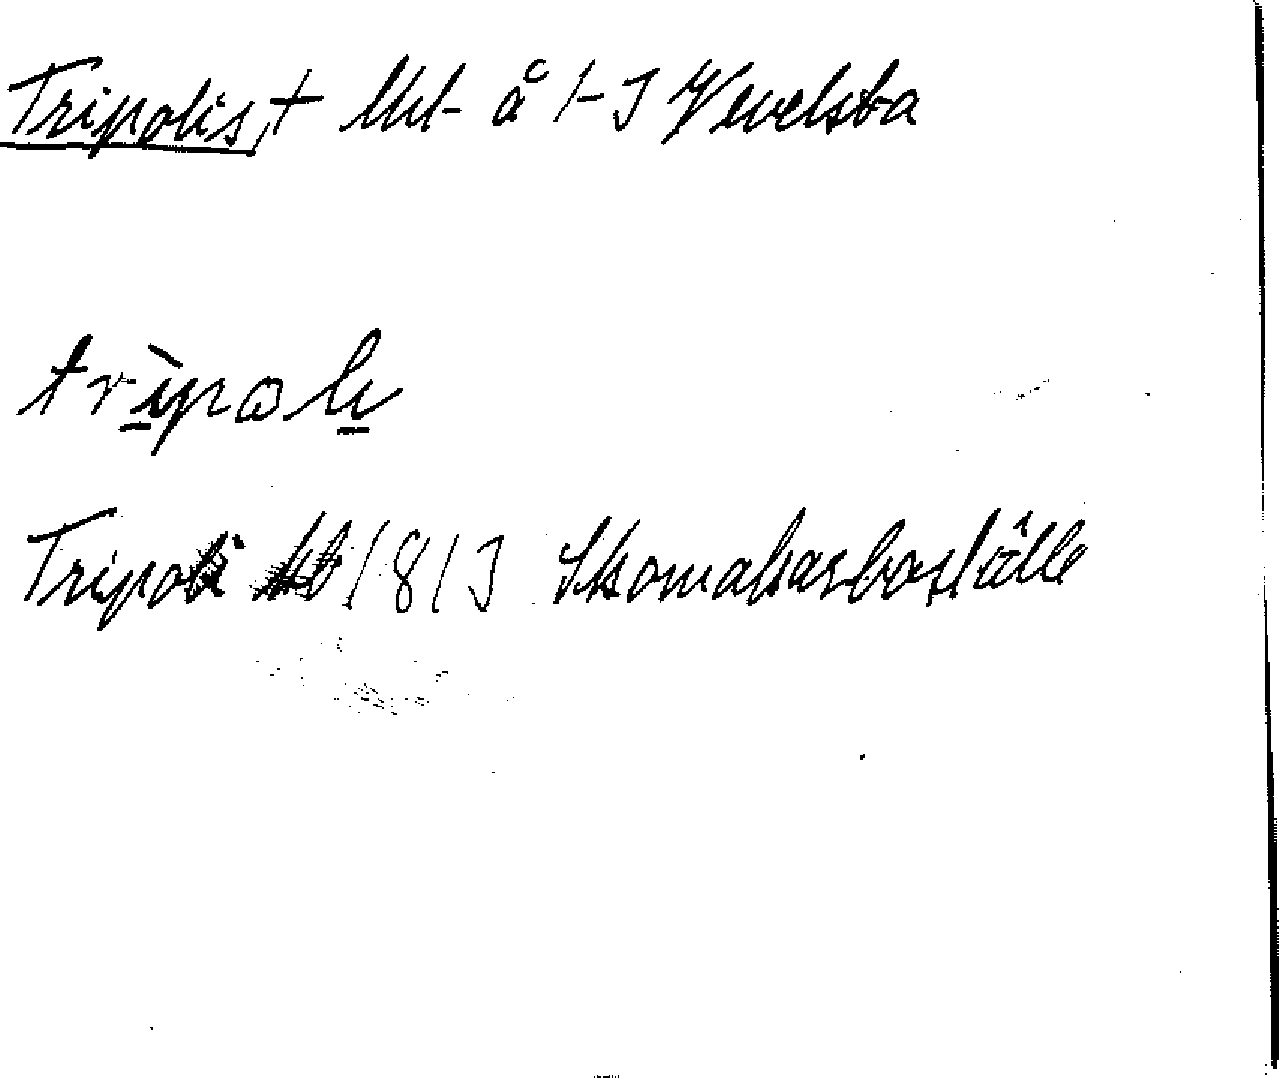 Tripolis, † Uht å 1-3 Vevelsta
tripoli
Tripoli 1813 Skomakarboställe